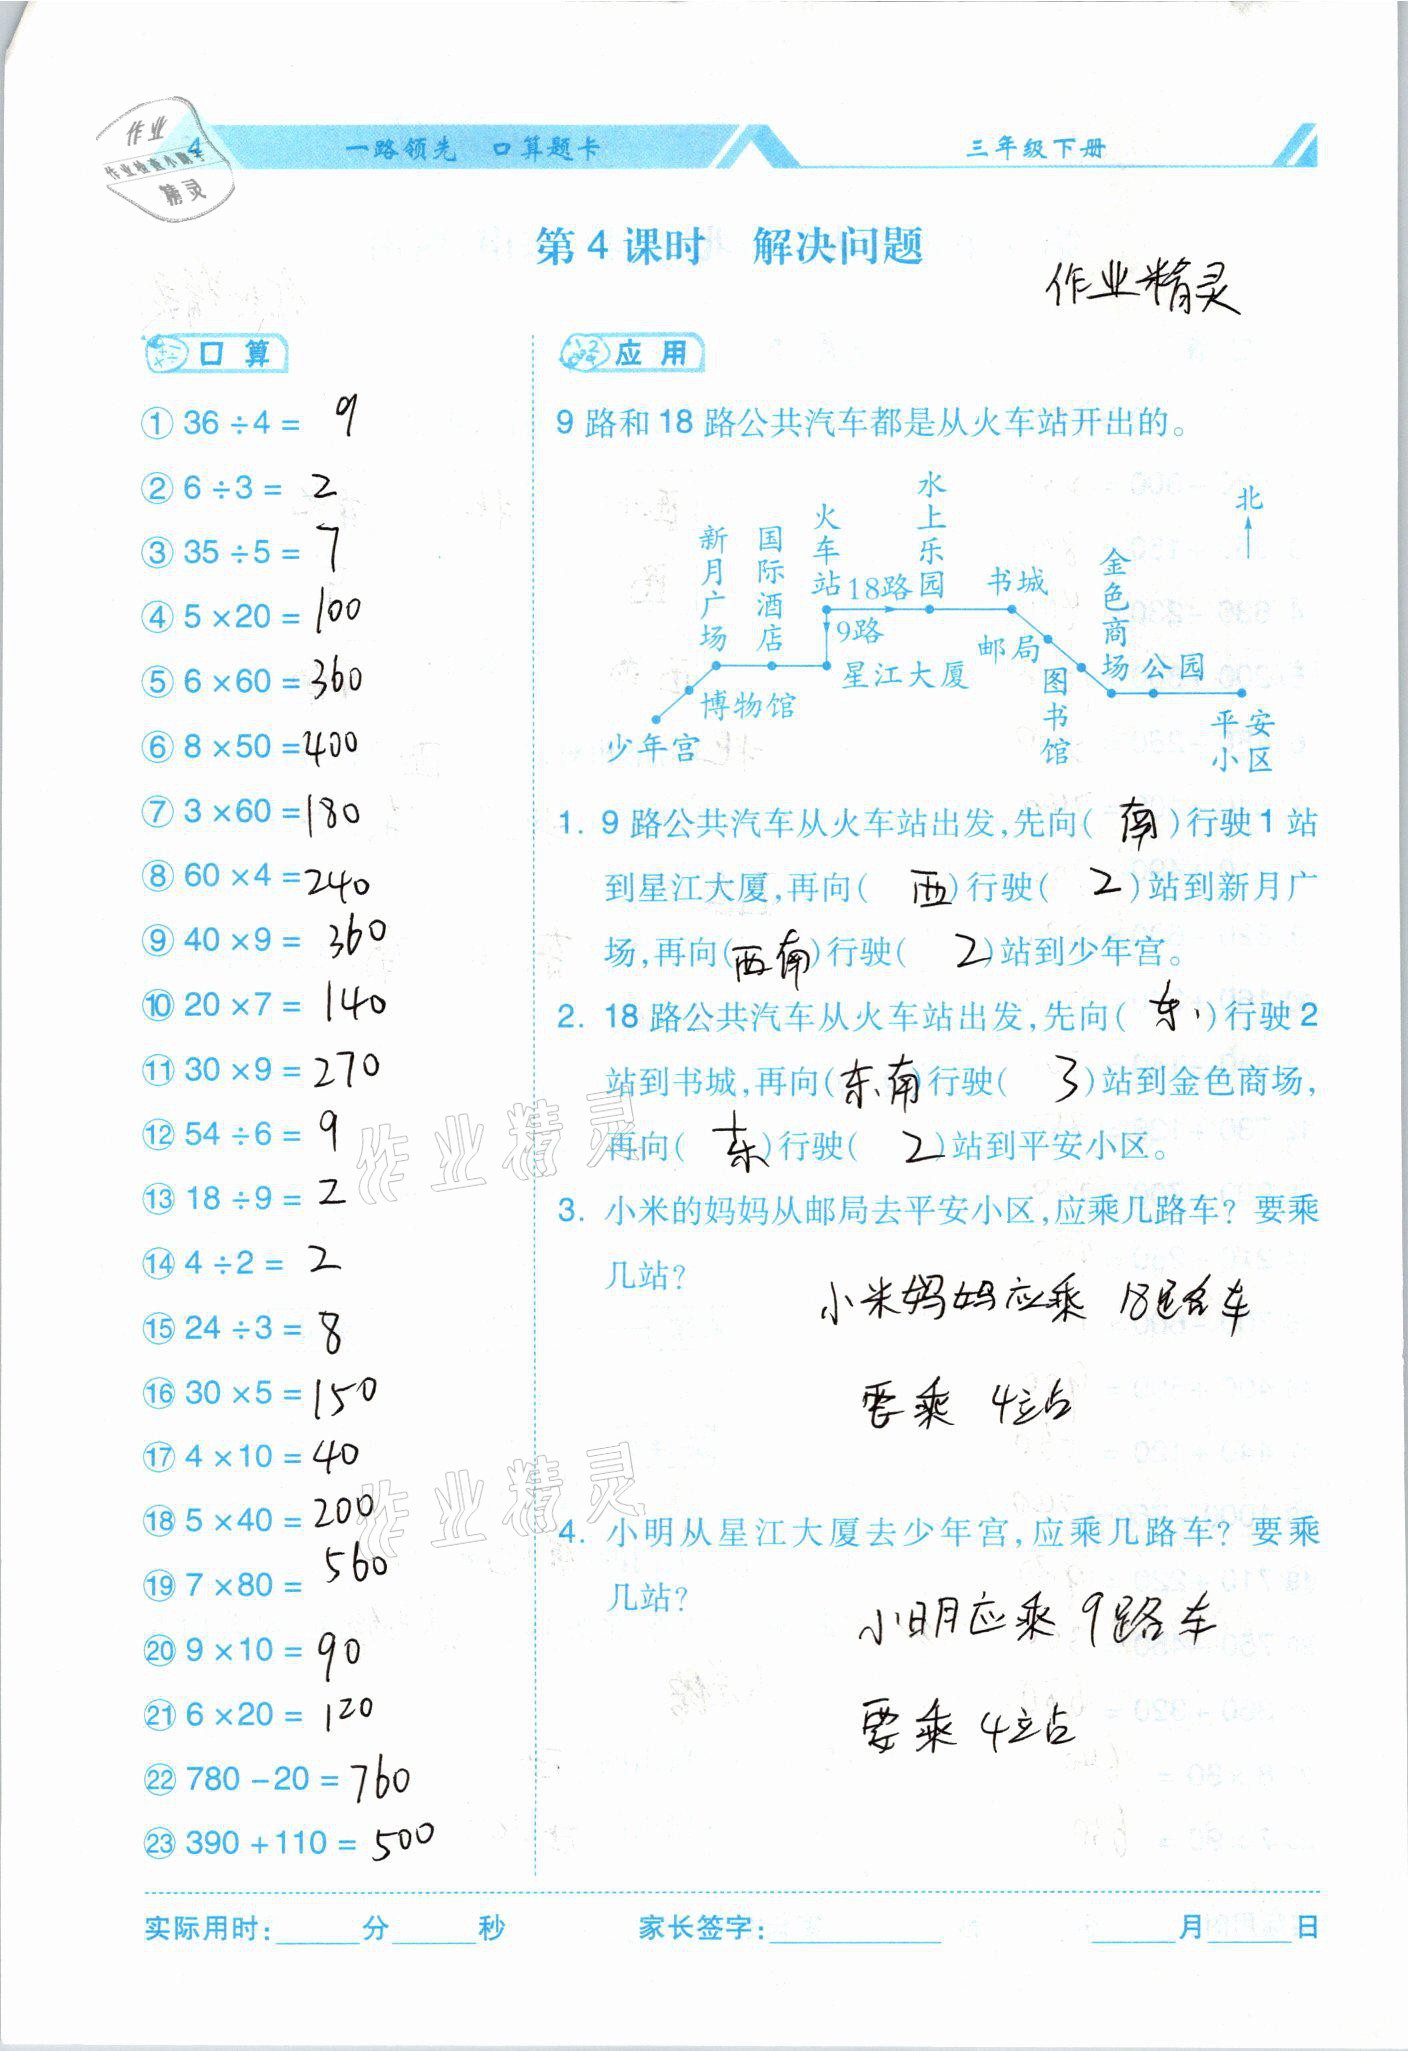 作业
作业检查小助手
精灵
4 一路领先 口算题卡 三年级下册
第 4 课时 解决问题
作业精灵
口算
① 36 ÷4 = 9
② 6 ÷3 = 2
③ 35 ÷5 = 7
④ 5 ×20 = 100
⑤ 6 ×60 = 360
⑥ 8 ×50 = 400
⑦ 3 ×60 = 180
⑧ 60 ×4 = 240
⑨ 40 ×9 = 360
⑩ 20 ×7 = 140
⑪ 30 ×9 = 270
⑫ 54 ÷6 = 9
⑬ 18 ÷9 = 2
⑭ 4 ÷2 = 2
⑮ 24 ÷3 = 8
⑯ 30 ×5 = 150
⑰ 4 ×10 = 40
⑱ 5 ×40 = 200
⑲ 7 ×80 = 560
⑳ 9 ×10 = 90
㉑ 6 ×20 = 120
㉒ 780 -20 = 760
㉓ 390 +110 = 500
应用
9 路和 18 路公共汽车都是从火车站开出的。
北
新月广场
国际酒店
火车站
18路
水上乐园
书城
金色商场
9路
邮局
星江大厦
图书馆
公园
博物馆
少年宫
平安小区
1. 9 路公共汽车从火车站出发,先向( 南 )行驶 1 站
到星江大厦,再向( 西 )行驶( 2 )站到新月广
场,再向( 西南 )行驶( 2 )站到少年宫。
2. 18 路公共汽车从火车站出发,先向( 东 )行驶 2
站到书城,再向( 东南 )行驶( 3 )站到金色商场,
再向( 东 )行驶( 2 )站到平安小区。
3. 小米的妈妈从邮局去平安小区,应乘几路车? 要乘
几站?
小米妈妈应乘 18路车
要乘 4站
4. 小明从星江大厦去少年宫,应乘几路车? 要乘
几站?
小明应乘 9路车
要乘 4站
作业精灵
作业精灵
实际用时:______分______秒 家长签字:____________ ______月______日